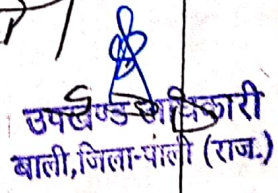 उपखण्ड अधिकारी
बाली,जिला-पाली (राज.)